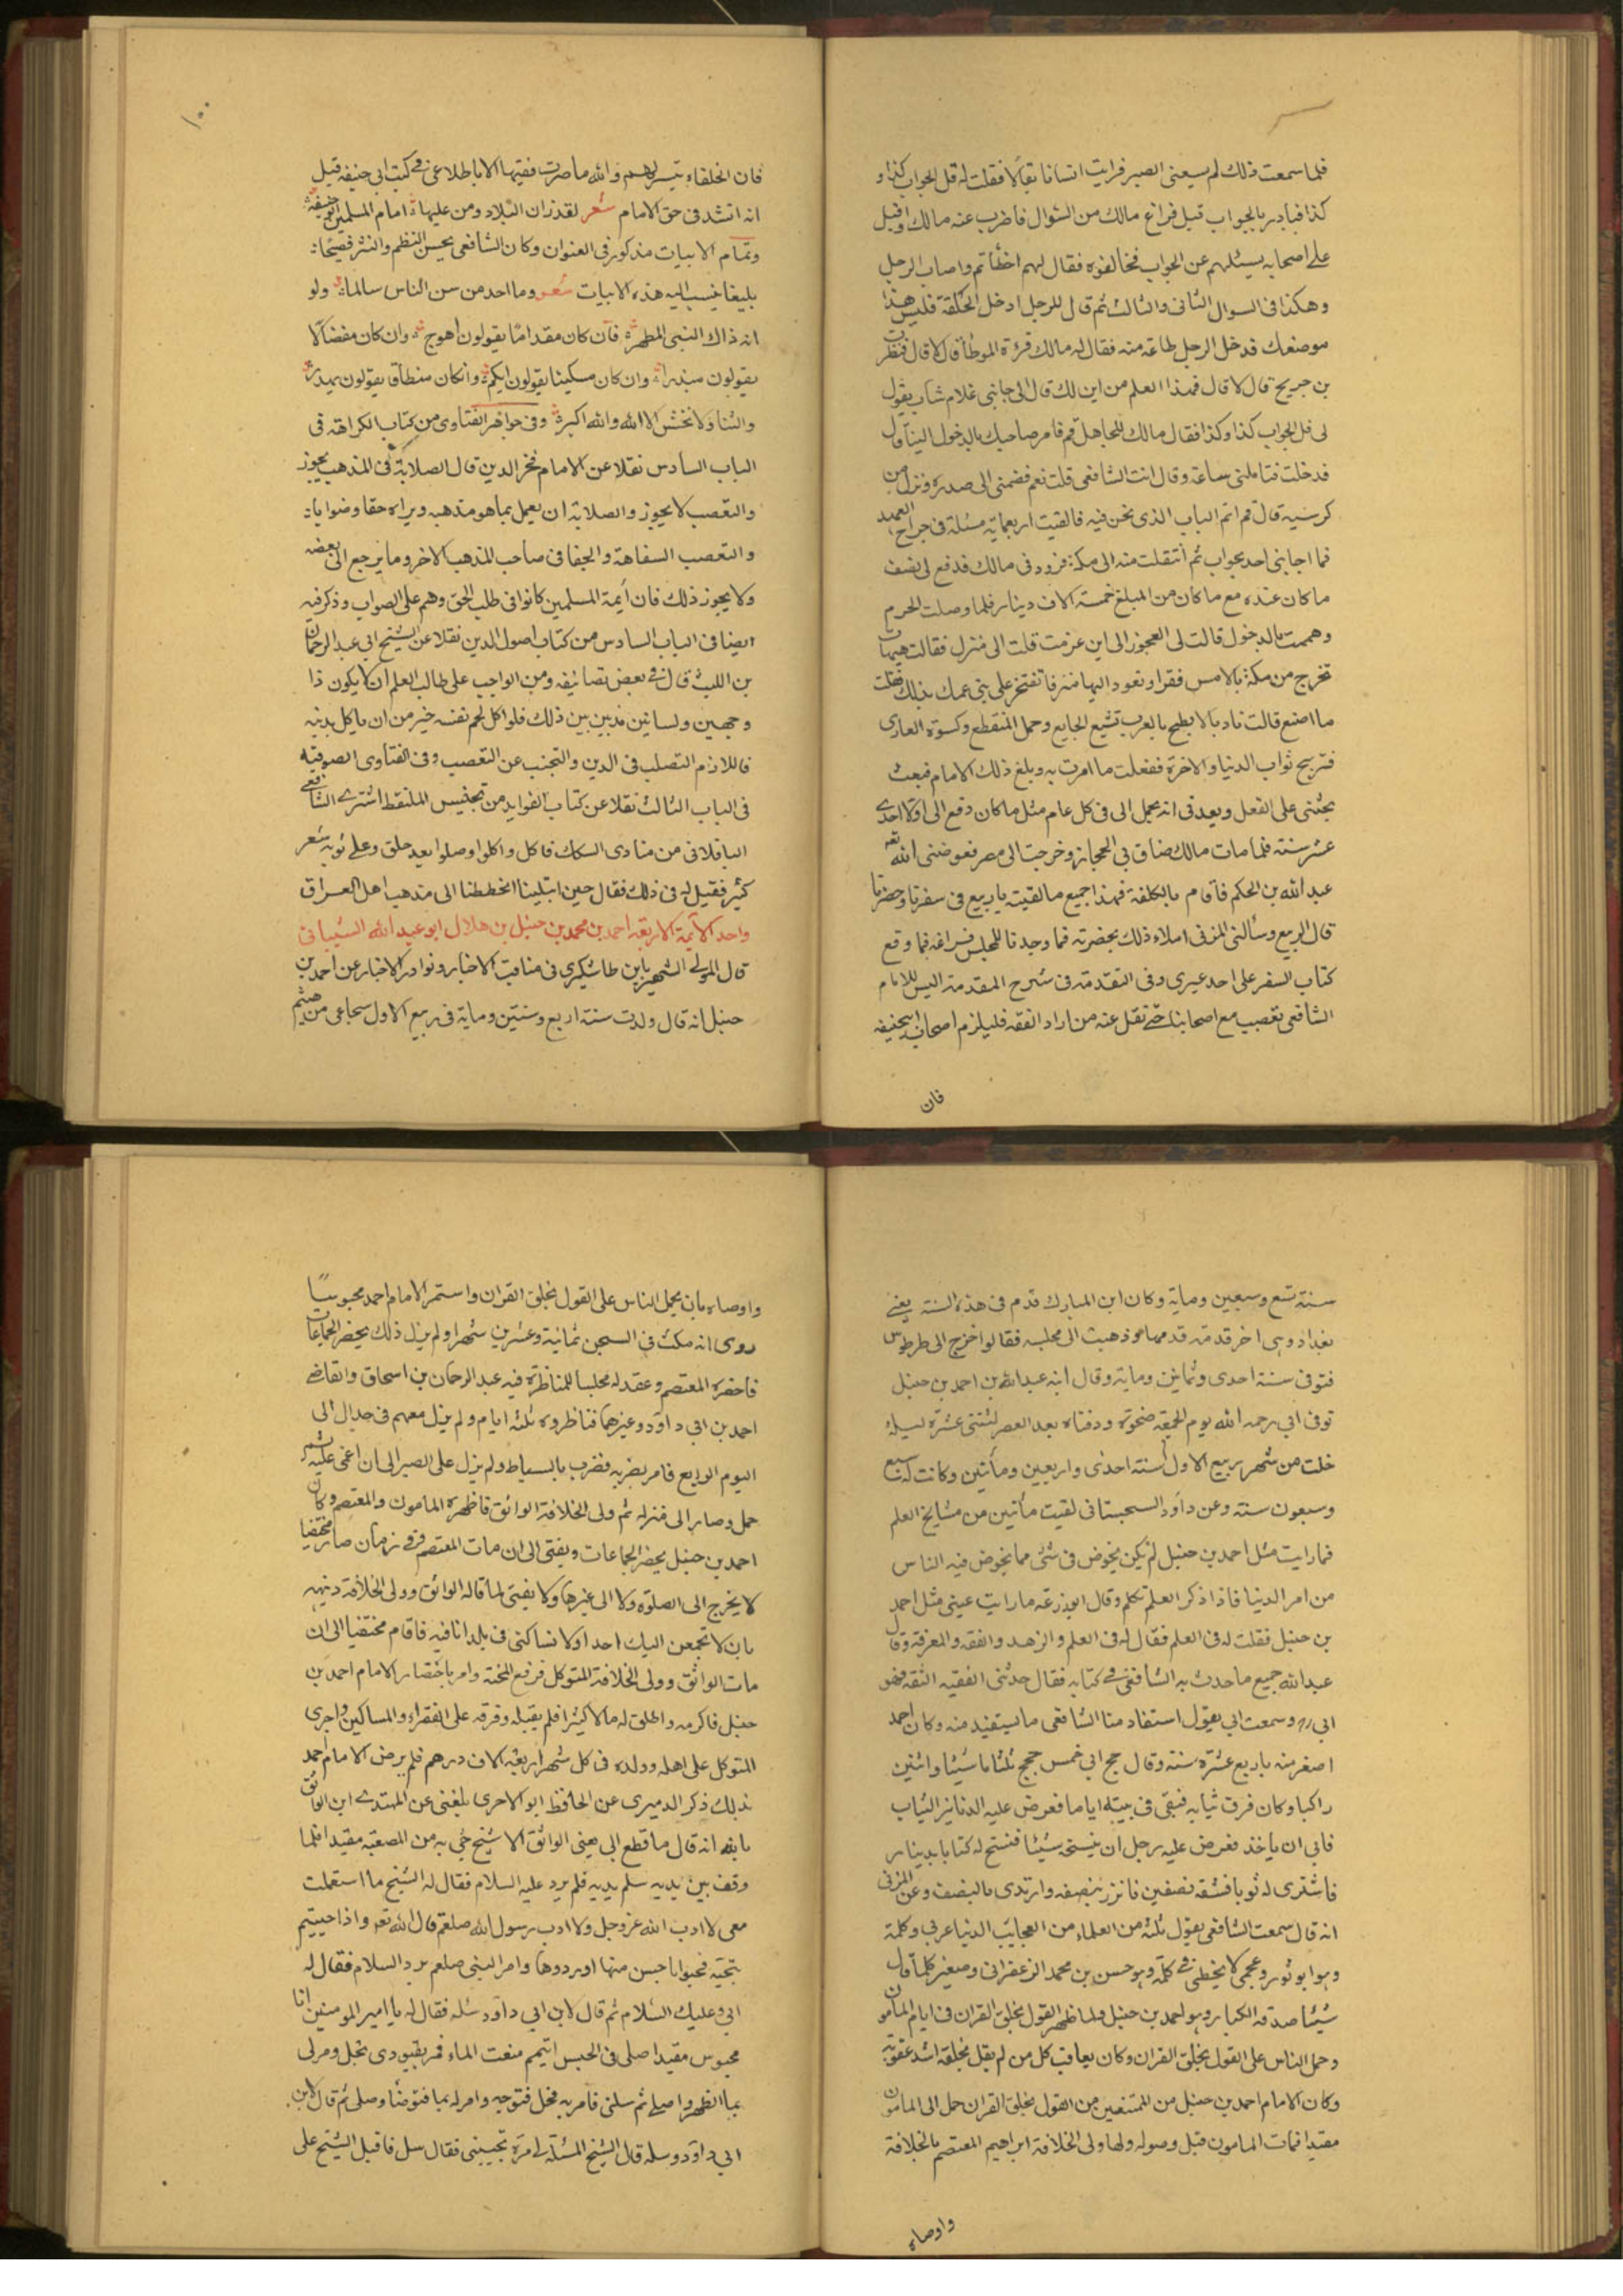 فلما سمعت ذلك لم يسعنى الصبر فرايت انسانا بقالا فقلت له قل الجواب كذا و
كذا فبادر بالجواب قبل فراغ مالك من السؤال فاضرب عنه مالك واقبل
على اصحابه يسئلهم عن الجواب فخالفوه فقال لهم اخطأتم واصاب الرجل
وهكذا فى السوال الثانى والثالث ثم قال للرجل ادخل الحلقة فليس هذا
موضعك فدخل الرجل طاعة منه فقال له مالك قرئة الموطأ قال لا قال فنظرت
بن جريح قال لا قال فهذا العلم من اين لك قال الى جانبى غلام شاب يقول
لى قل الجواب كذا وكذا فقال مالك للجاهل قم فامر صاحبك بالدخول الينا قال
فدخلت فتاملنى ساعة وقال انت الشافعى قلت نعم فضمنى الى صدره ونزل من
كرسيه قال قم اتم الباب الذى نحن فيه فالقيت اربعماية مسئلة فى جراح العمد
فما اجابنى احد بجواب ثم انتقلت منه الى مكة فزودنى مالك فدفع لى نصف
ما كان عنده مع ما كان من المبلغ خمسة الاف دينار فلما وصلت الحرم
وهممت بالدخول قالت لى العجوز الى اين عزمت قلت الى منزل فقالت هيهات
تخرج من مكة بالامس فقيرا وتعود اليها تفتخر على بنى عمك بذلك فقلت
ما اصنع قالت ناد بالابطح يا لعرب تشبع الجايع وحمل المنقطع وكسوة العارى
فتربح ثواب الدنيا والاخرة ففعلت ما امرت به وبلغ ذلك الامام فبعث
يحثنى على الفعل ويعدنى انه يحمل الى فى كل عام مثل ما كان دفع الى اولا احدى
عشر سنة فلما مات مالك ضاق بى الحجاز وخرجت الى مصر فعوضنى الله تع
عبد الله بن الحكم فاقام بالكلفة فهذا جميع ما لقيته يا ربيع فى سفرنا وحضرنا
قال الربيع وسألنى المزنى املاء ذلك بحضرته فما وجدنا للمجلس فراغه فما وقع
كتاب السفر على احد غيرى وفى التقدمة فى شرح المقدمة اليس للامام
الشافعى تعصب مع اصحابنا حتى نقل عنه من اراد الفقه فليلزم اصحاب ابيحنيفه
فان
١٠٠
فان الخلفاء تيسر لهم والله ما صرت فقيها الا باطلاعى فى كتب ابى حنيفه قيل
انه انشد فى حق الامام شعر لقد زان البلاد ومن عليها امام المسلمين ابو حنيفة
وتمام الابيات مذكور فى العنوان وكان الشافعى بحسن النظم والنثر فصيحا
بليغا ينسب اليه هذه الابيات شعر وما احد من سن الناس سالما ولو
انه ذاك النبى المطهر فان كان مقداما يقولون اهوج وان كان مفضالا
يقولون مبذرا وان كان مسكينا يقولون ابكم وانكان منطاقا يقولون يهذر
والثنا ولا تخش الا الله والله اكبر وفى جواهر الفتاوى من كتاب الكراهة فى
الباب السادس نقلا عن الامام فخر الدين قال الصلابة فى المذهب يجوز
والتعصب لا يجوز والصلابة ان يعمل بما هو مذهبه ويراه حقا وصوابا
والتعصب السفاهة والجفا فى صاحب المذهب الاخر وما يرجع الى بغضه
ولا يجوز ذلك فان أيمة المسلمين كانوا فى طلب الحق وهم على الصواب وذكر فيه
ايضا فى الباب السادس من كتاب اصول الدين نقلا عن الشيخ ابى عبد الرحمان
بن الليث قال فى بعض تصانيفه ومن الواجب على طالب العلم ان لا يكون ذا
وجهين ولسانين مذبذبين بين ذلك فلو اكل لحم نفسه خير من ان ياكل بدينه
فاللازم التصلب فى الدين والتجنب عن التعصب وفى الفتاوى الصوفيه
فى الباب الثالث نقلا عن كتاب الفوايد من تجنيس الملتقط اشترى الشافعى
الباقلانى من منادى السكك فاكل واكلوا وصلوا بعد حلق وعلى ثوبه شعر
كثير فقيل له فى ذلك فقال حين ابتلينا انحططنا الى مذهب اهل العراق
واحد الايمة الاربعة احمد بن محمد بن حنبل بن هلال ابو عبد الله الشيبانى
قال المولى الشهير بابن طاشكبرى فى مناقب الاخبار ونوادر الاخبار عن احمد بن
حنبل انه قال ولدت سنة اربع وستين وماية فى ربيع الاول سماعى من هيثم
سنة تسع وسبعين وماية وكان ابن المبارك قدم فى هذه السنة يعنى
بغداد وهى اخر قدمة قدمها وذهبت الى مجلسه فقالوا خرج الى طرطوس
فتوفى سنة احدى وثمانين وماية وقال ابنه عبد الله بن احمد بن حنبل
توفى ابى رحمه الله يوم الجمعة ضحوة ودفناه بعد العصر لثنتى عشرة ليلة
خلت من شهر ربيع الاول لسنة احدى واربعين ومأتين وكانت له سبع
وسبعون سنة وعن داود السجستانى لقيت مأتين من مشايخ العلم
فما رايت مثل احمد بن حنبل لم يكن يخوض فى شئ مما يخوض فيه الناس
من امر الدنيا فاذا ذكر العلم تكلم وقال ابو زرعة ما رايت عينى مثل احمد
بن حنبل فقلت له فى العلم فقال له فى العلم والزهد والفقه والمعرفة وقال
عبد الله جميع ما حدث به الشافعى فى كتابه فقال حدثنى الفقيه الثقه فهو
ابى ره وسمعت ابى يقول استفاد منا الشافعى ما نستفيد منه وكان احمد
اصغر منه باربع عشرة سنة وقال حج ابى خمس حجج ثلثا ماشيا واثنين
راكبا وكان فرق ثيابه فبقى فى بيته اياما فعرض عليه الدنانير الثياب
فابى ان ياخذ فعرض عليه رجل ان ينسخ شيئا فنسخ له كتابا بدينار
فاشترى له ثوبا فشقه نصفين فاتزر بنصفه وارتدى بالنصف وعن المزنى
انه قال سمعت الشافعى يقول ثلثة من العلماء من العجايب الدنيا عربى وكلمة
وهو ابو ثور وعجمى لا يخطئ فى كلمة وهو حسن بن محمد الزعفرانى وصغير كلما قال
شيئا صدقه الكبار وهو احمد بن حنبل ولما ظهر القول بخلق القران فى ايام المامون
وحمل الناس على القول بخلق القران وكان يعاقب كل من لم يقل بخلقه اشد عقوبة
وكان الامام احمد بن حنبل من الممتنعين من القول بخلق القران حمل الى المامون
مقيدا فمات المامون قبل وصوله ولما ولى الخلافة ابراهيم المعتصم بالخلافة
واوصاه
واوصاه بان يحمل الناس على القول بخلق القران واستمر الامام احمد محبوسا
روى انه مكث فى السجن ثمانية وعشرين شهرا ولم يزل ذلك يحضر الجماعات
فاحضره المعتصم وعقد له مجلسا للمناظرة فيه عبد الرحمان بن اسحاق والقاضى
احمد بن ابى داود وغيرهما فناظروه ثلثة ايام ولم يزل معهم فى جدال الى
اليوم الرابع فامر بضربه فضرب بالسياط ولم يزل على الصبر الى ان اغمى عليه ثم
حمل وصار الى منزله ثم ولى الخلافة الواثق فاظهره المامون والمعتصم وكان
احمد بن حنبل يحضر الجماعات ويفتى الى ان مات المعتصم وفى زمان صار مختفيا
لا يخرج الى الصلوة ولا الى غيرها ولا يفتى لما قاله الواثق وولى الخلافة دينه
بان لا تجمعن اليك احدا ولا تساكنى فى بلد انا فيه فاقام مختفيا الى ان
مات الواثق وولى الخلافة المتوكل فرفع المحنة وامر باحضار الامام احمد بن
حنبل فاكرمه واطلق له مالا كثيرا فلم يقبله وفرقه على الفقراء والمساكين واجرى
المتوكل على اهله وولده فى كل شهر اربعة الاف درهم فلم يرض الامام احمد
بذلك ذكر الدميرى عن الحافظ ابو الاحرى بلغنى عن المهتدى ابن الواثق
بالله انه قال ما قطع ابى يعنى الواثق الا شيخ جئ به من المصقبه مقيدا فلما
وقف بين يديه سلم يديه فلم يرد عليه السلام فقال له الشيخ ما استعملت
معى لا ادب الله عز وجل ولا ادب رسول الله صلعم قال الله تع واذا حييتم
بتحية فحيوا باحسن منها او ردوها وامر النبى صلعم برد السلام فقال له
ابى وعليك السلام ثم قال لابن ابى داود سله فقال له يا امير المومنين انا
محبوس مقيد اصلى فى الحبس اتيمم منعت الماء فمر بقيودى تحل ومر لى
بما اتطهر واصلى ثم سلنى فامر به فحل فتوجه وامر له بما فتوضأ وصلى ثم قال لابن
ابى داود وسله قال الشيخ المسئلة لى مره تجيبنى فقال سل فاقبل الشيخ على